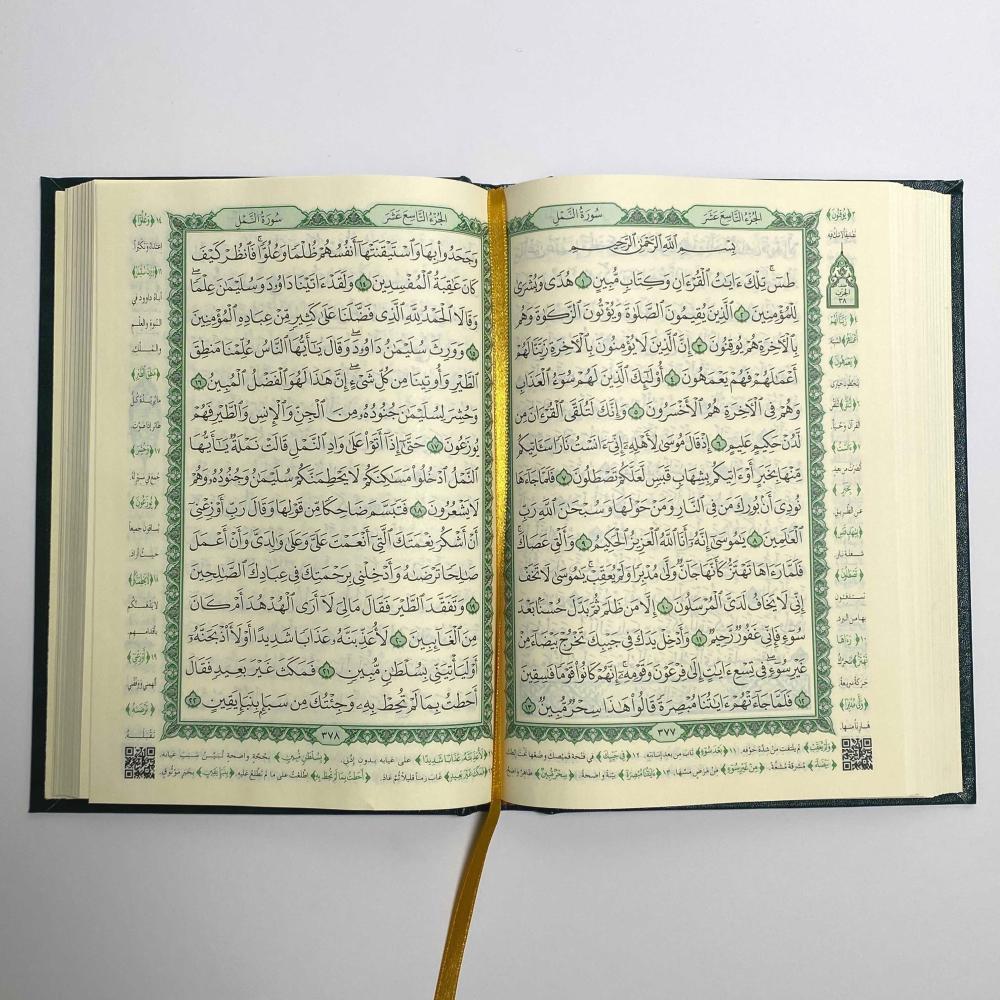 سُورَةُ النَّمْلِ
الجُزْءُ التَّاسِعَ عَشَرَ
بِسْمِ ٱللَّهِ ٱلرَّحْمَٰنِ ٱلرَّحِيمِ
طسٓۚ تِلْكَ ءَايَٰتُ ٱلْقُرْءَانِ وَكِتَابٍ مُّبِينٍ ١ هُدًى وَبُشْرَىٰ
لِلْمُؤْمِنِينَ ٢ ٱلَّذِينَ يُقِيمُونَ ٱلصَّلَوٰةَ وَيُؤْتُونَ ٱلزَّكَوٰةَ وَهُم
بِٱلْءَاخِرَةِ هُمْ يُوقِنُونَ ٣ إِنَّ ٱلَّذِينَ لَا يُؤْمِنُونَ بِٱلْءَاخِرَةِ زَيَّنَّا لَهُمْ
أَعْمَٰلَهُمْ فَهُمْ يَعْمَهُونَ ٤ أُوْلَٰٓئِكَ ٱلَّذِينَ لَهُمْ سُوٓءُ ٱلْعَذَابِ
وَهُمْ فِى ٱلْءَاخِرَةِ هُمُ ٱلْأَخْسَرُونَ ٥ وَإِنَّكَ لَتُلَقَّى ٱلْقُرْءَانَ مِن
لَّدُنْ حَكِيمٍ عَلِيمٍ ٦ إِذْ قَالَ مُوسَىٰ لِأَهْلِهِۦٓ إِنِّىٓ ءَانَسْتُ نَارًا سَـَٔاتِيكُم
مِّنْهَا بِخَبَرٍ أَوْ ءَاتِيكُم بِشِهَابٍ قَبَسٍ لَّعَلَّكُمْ تَصْطَلُونَ ٧ فَلَمَّا جَآءَهَا
نُودِىَ أَنۢ بُورِكَ مَن فِى ٱلنَّارِ وَمَنْ حَوْلَهَا وَسُبْحَٰنَ ٱللَّهِ رَبِّ
ٱلْعَٰلَمِينَ ٨ يَٰمُوسَىٰٓ إِنَّهُۥٓ أَنَا ٱللَّهُ ٱلْعَزِيزُ ٱلْحَكِيمُ ٩ وَأَلْقِ عَصَاكَۚ
فَلَمَّا رَءَاهَا تَهْتَزُّ كَأَنَّهَا جَآنٌّ وَلَّىٰ مُدْبِرًا وَلَمْ يُعَقِّبْۚ يَٰمُوسَىٰ لَا تَخَفْ
إِنِّى لَا يَخَافُ لَدَىَّ ٱلْمُرْسَلُونَ ١٠ إِلَّا مَن ظَلَمَ ثُمَّ بَدَّلَ حُسْنًۢا بَعْدَ
سُوٓءٍ فَإِنِّى غَفُورٌ رَّحِيمٌ ١١ وَأَدْخِلْ يَدَكَ فِى جَيْبِكَ تَخْرُجْ بَيْضَآءَ مِنْ
غَيْرِ سُوٓءٍۖ فِى تِسْعِ ءَايَٰتٍ إِلَىٰ فِرْعَوْنَ وَقَوْمِهِۦٓۚ إِنَّهُمْ كَانُواْ قَوْمًا فَٰسِقِينَ
١٢ فَلَمَّا جَآءَتْهُمْ ءَايَٰتُنَا مُبْصِرَةً قَالُواْ هَٰذَا سِحْرٌ مُّبِينٌ ١٣
٣٧٧
الحِزْبُ
٣٨
سُورَةُ النَّمْلِ
الجُزْءُ التَّاسِعَ عَشَرَ
وَجَحَدُواْ بِهَا وَٱسْتَيْقَنَتْهَآ أَنفُسُهُمْ ظُلْمًا وَعُلُوًّاۚ فَٱنظُرْ كَيْفَ
كَانَ عَٰقِبَةُ ٱلْمُفْسِدِينَ ١٤ وَلَقَدْ ءَاتَيْنَا دَاوُۥدَ وَسُلَيْمَٰنَ عِلْمًاۖ
وَقَالَا ٱلْحَمْدُ لِلَّهِ ٱلَّذِى فَضَّلَنَا عَلَىٰ كَثِيرٍ مِّنْ عِبَادِهِ ٱلْمُؤْمِنِينَ
١٥ وَوَرِثَ سُلَيْمَٰنُ دَاوُۥدَۖ وَقَالَ يَٰٓأَيُّهَا ٱلنَّاسُ عُلِّمْنَا مَنطِقَ
ٱلطَّيْرِ وَأُوتِينَا مِن كُلِّ شَىْءٍۖ إِنَّ هَٰذَا لَهُوَ ٱلْفَضْلُ ٱلْمُبِينُ ١٦
وَحُشِرَ لِسُلَيْمَٰنَ جُنُودُهُۥ مِنَ ٱلْجِنِّ وَٱلْإِنسِ وَٱلطَّيْرِ فَهُمْ
يُوزَعُونَ ١٧ حَتَّىٰٓ إِذَآ أَتَوْاْ عَلَىٰ وَادِ ٱلنَّمْلِ قَالَتْ نَمْلَةٌ يَٰٓأَيُّهَا
ٱلنَّمْلُ ٱدْخُلُواْ مَسَٰكِنَكُمْ لَا يَحْطِمَنَّكُمْ سُلَيْمَٰنُ وَجُنُودُهُۥ وَهُمْ
لَا يَشْعُرُونَ ١٨ فَتَبَسَّمَ ضَاحِكًا مِّن قَوْلِهَا وَقَالَ رَبِّ أَوْزِعْنِىٓ
أَنْ أَشْكُرَ نِعْمَتَكَ ٱلَّتِىٓ أَنْعَمْتَ عَلَىَّ وَعَلَىٰ وَٰلِدَىَّ وَأَنْ أَعْمَلَ
صَٰلِحًا تَرْضَىٰهُ وَأَدْخِلْنِى بِرَحْمَتِكَ فِى عِبَادِكَ ٱلصَّٰلِحِينَ
١٩ وَتَفَقَّدَ ٱلطَّيْرَ فَقَالَ مَا لِىَ لَآ أَرَى ٱلْهُدْهُدَ أَمْ كَانَ
مِنَ ٱلْغَآئِبِينَ ٢٠ لَأُعَذِّبَنَّهُۥ عَذَابًا شَدِيدًا أَوْ لَأَاْذْبَحَنَّهُۥٓ
أَوْ لَيَأْتِيَنِّى بِسُلْطَٰنٍ مُّبِينٍ ٢١ فَمَكَثَ غَيْرَ بَعِيدٍ فَقَالَ
أَحَطتُ بِمَا لَمْ تُحِطْ بِهِۦ وَجِئْتُكَ مِن سَبَإٍۭ بِنَبَإٍ يَقِينٍ ٢٢
٣٧٨